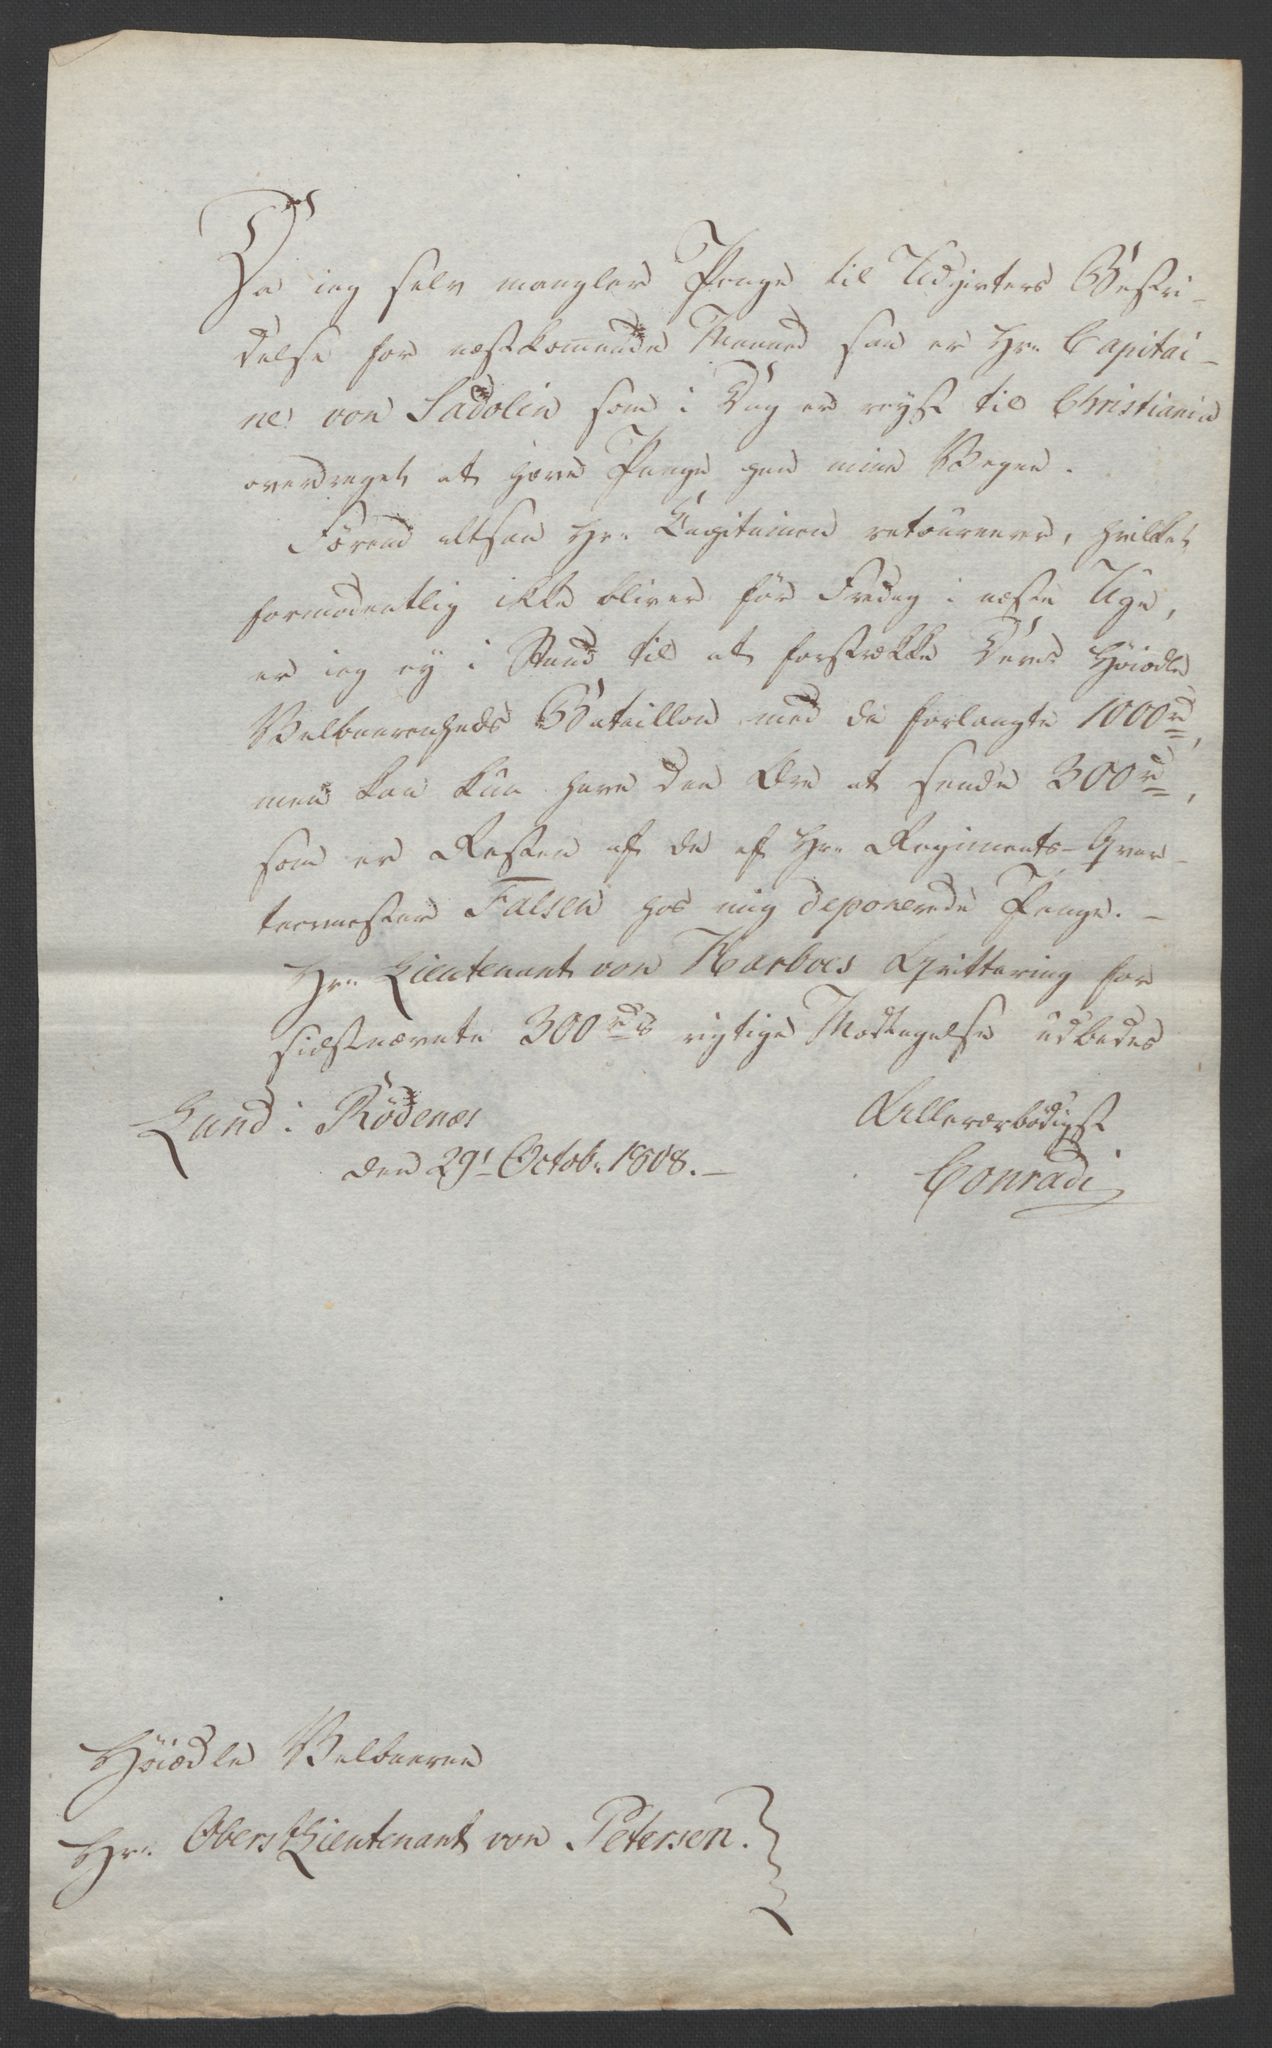 Da ieg selv mangler Penge til Udgivters Bestri-
delse for næstkommende Maaned saa er Hr. Capitai-
ne von Sadolin som i Dag er reyst til Christiania
overdraget at hæve Penge paa mine Vegne.
Førend altsaa Hr. Capitainen retournerer, hvilket
formodentlig ikke bliver før Fredag i næste Uge,
er ieg ey i Stand til at forstrække Deres Høiædle
Velbaarenheds Bataillon med de forlangte 1000 rd,
men kan kun have den Ære at sende 300 rd,
som er Resten af de af Hr. Regiments-Qvar-
teermester Falsen hos mig deponerede Penge. —
Hr. Lieutenant von Harboes Qvittering for
sidstnævnte 300 rds rigtige Modtagelse udbedes
Lund i Rödenæs
den 29t Octobr. 1808. —
Allerærbödigst
Conradi
Høiædle Velbaarne
Hr. Oberst Lieutenant von Petersen.